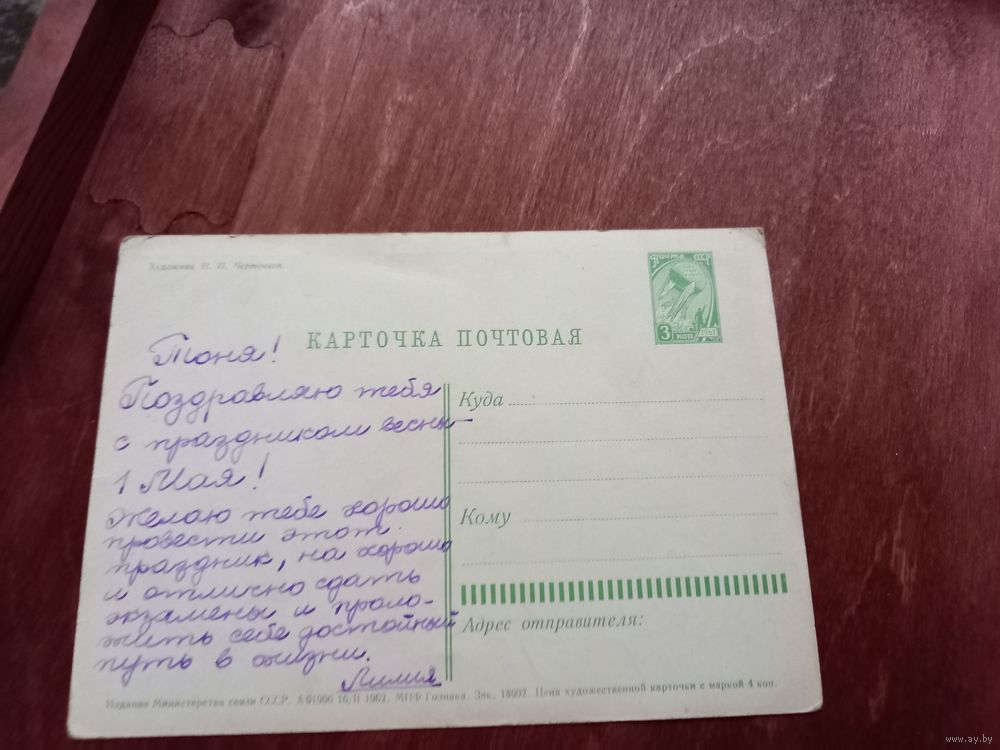 Художник Н. П. Чертенков.
ПОЧТА СССР
3 КОП 1961
КАРТОЧКА ПОЧТОВАЯ
Тоня!
Поздравляю тебя
с праздником весны –
1 Мая!
Желаю тебе хорошо
провести этот
праздник, на хорошо
и отлично сдать
экзамены и проло-
жить себе достойный
путь в жизни.
Лилия
Куда
Кому
Адрес отправителя:
Издание Министерства связи СССР. А 01906 16/II 1962. МПФ Гознака. Зак. 18092. Цена художественной карточки с маркой 4 коп.
www.ay.by